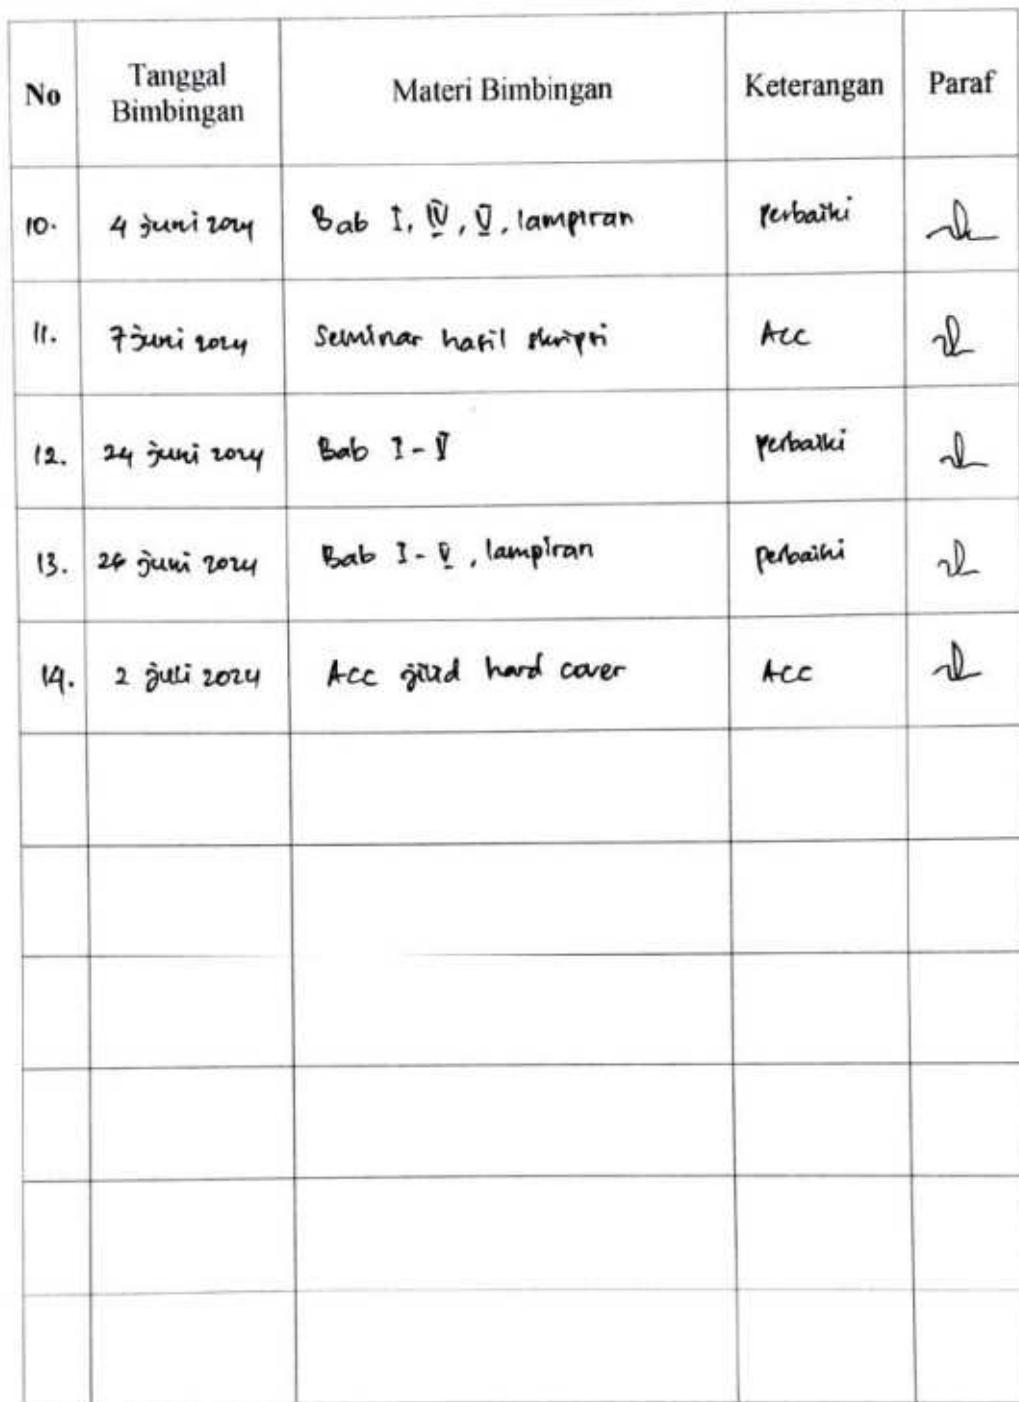 No Tanggal Bimbingan Materi Bimbingan Keterangan Paraf
10. 4 juni 2024 Bab I, IV, V, lampiran perbaiki
11. 7 juni 2024 Seminar hasil skripsi Acc
12. 24 juni 2024 Bab I - V perbaiki
13. 26 juni 2024 Bab I - V, lampiran perbaiki
14. 2 juli 2024 Acc jilid hard cover Acc